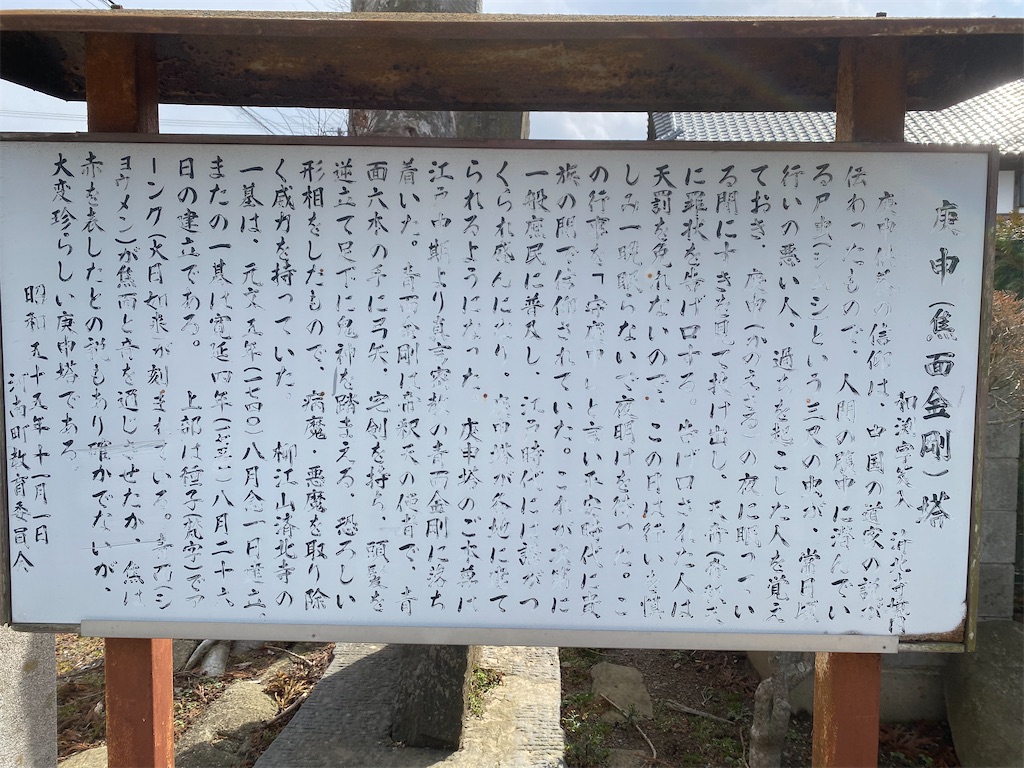 庚申（焦面金剛）塔
和渕字笈入 済北寺
庚申の信仰は、中国の道家の説が
伝わったもので、人間の腹中に潜んでい
る尸虫（シムシ）という三尺の虫が、常日頃
行いの悪い人、過ちを起こした人を覚え
ておき、庚申（かのえさる）の夜に眠ってい
る間にすきを見て抜け出し、天帝
に罪状を告げ口する。告げ口された人は
天罰を免れないので、この日は行いを慎
しみ一晩眠らないで夜明けを待った。こ
の行事を「守庚申」と言い平安時代に貴
族の間で信仰されていた。これが次第に
一般庶民に普及し、江戸時代には講がつ
くられ盛んになり、庚申塔が各地に建て
られるようになった。庚申塔のご本尊は
江戸中期より真言密教の青面金剛に落ち
着いた。青面金剛は帝釈天の使者で、青
面六本の手に弓矢、宝剣を持ち、頭髪を
逆立て足下に鬼神を踏まえる、恐ろしい
形相をしたもので、病魔・悪魔を取り除
く威力を持っていた。 柳江山済北寺の
一基は、元文五年（一七四〇）八月念一日建立
またの一基は宝延四年（一七五一）八月二十六
日の建立である。 上部は種子（梵字）で
ーンク（大日如来）が刻まれている。青面（シ
ヨウメン）が焦面と音を通じさせたか、或は
赤を表したとの説もあり確かでないが、
大変珍らしい庚申塔である。
昭和五十五年十一月一日
河南町教育委員会